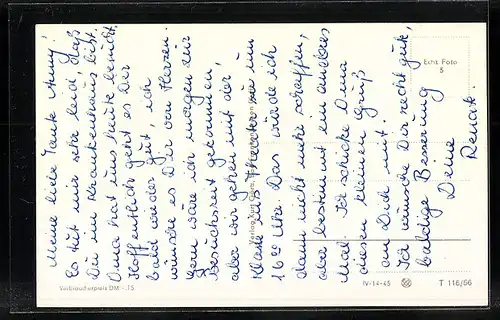 Meine liebe Tante Anny!
Es tut mir sehr leid, daß
Du im Krankenhaus bist.
Oma hat uns heute besucht.
Hoffentlich geht es Dir
bald wieder gut, ich
wünsche es Dir von Herzen.
Gern wäre ich morgen zur
Besuchszeit gekommen,
aber wir gehen mit der
Klasse ins Theater um
16 00 Uhr. Das würde ich
dann nicht mehr schaffen,
aber bestimmt ein anderes
Mal. Ich schicke Oma
diesen kleinen Gruß
an Dich mit!
Ich wünsche Dir recht gute,
baldige Besserung
Deine
Renate.
Echt Foto
5
Verbraucherpreis DM -.15
IV-14-45
T 116/56